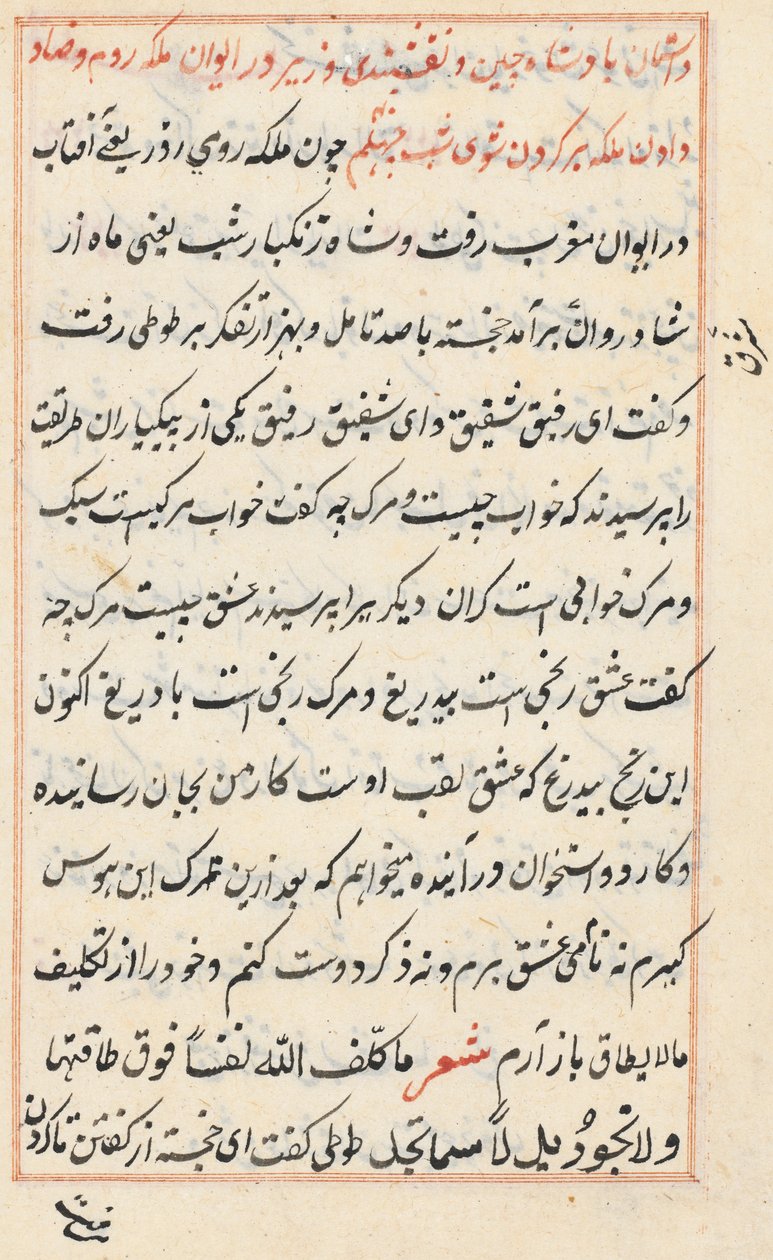 داستان پادشاه چین و نقشبندی وزیر در ایوان ملکه روم و رضا
دادن ملکه بر کردن شوی شب چهلم چون ملکه روی روز یعنی آفتاب
در ایوان مغرب رفت و شاه زنکبار شب یعنی ماه از
شادروان برآمد خجسته با صد تامل و بهزار تفکر بر طوطی رفت
شرق
و کفت ای رفیق شفیق و ای شفیق رفیق یکی از پیکیاران طریقت
را پرسیدند که خواب چیست و مرک چه کفت خواب مرکیست سبک
و مرک خوابی است کران دیکریرا پرسیدند عشق چیست مرک چه
کفت عشق رنجی است بیدریغ و مرک رنجی است با دریغ اکنون
این رنج بیدریغ که عشق لقب اوست کار من بجان رسانیده
و کارد و استخوان درآینده میخواهم که بعد ازین ترک این هوس
کیرم نه نامی عشق برم و نه ذکر دوست کنم و خود را از تکلیف
مالایطاق باز آرم شعر ما کلّف اللّه نفساً فوق طاقتها
ولا تجود ید الا بما تجد طوطی کفت ای خجسته از کفتن تا کردن